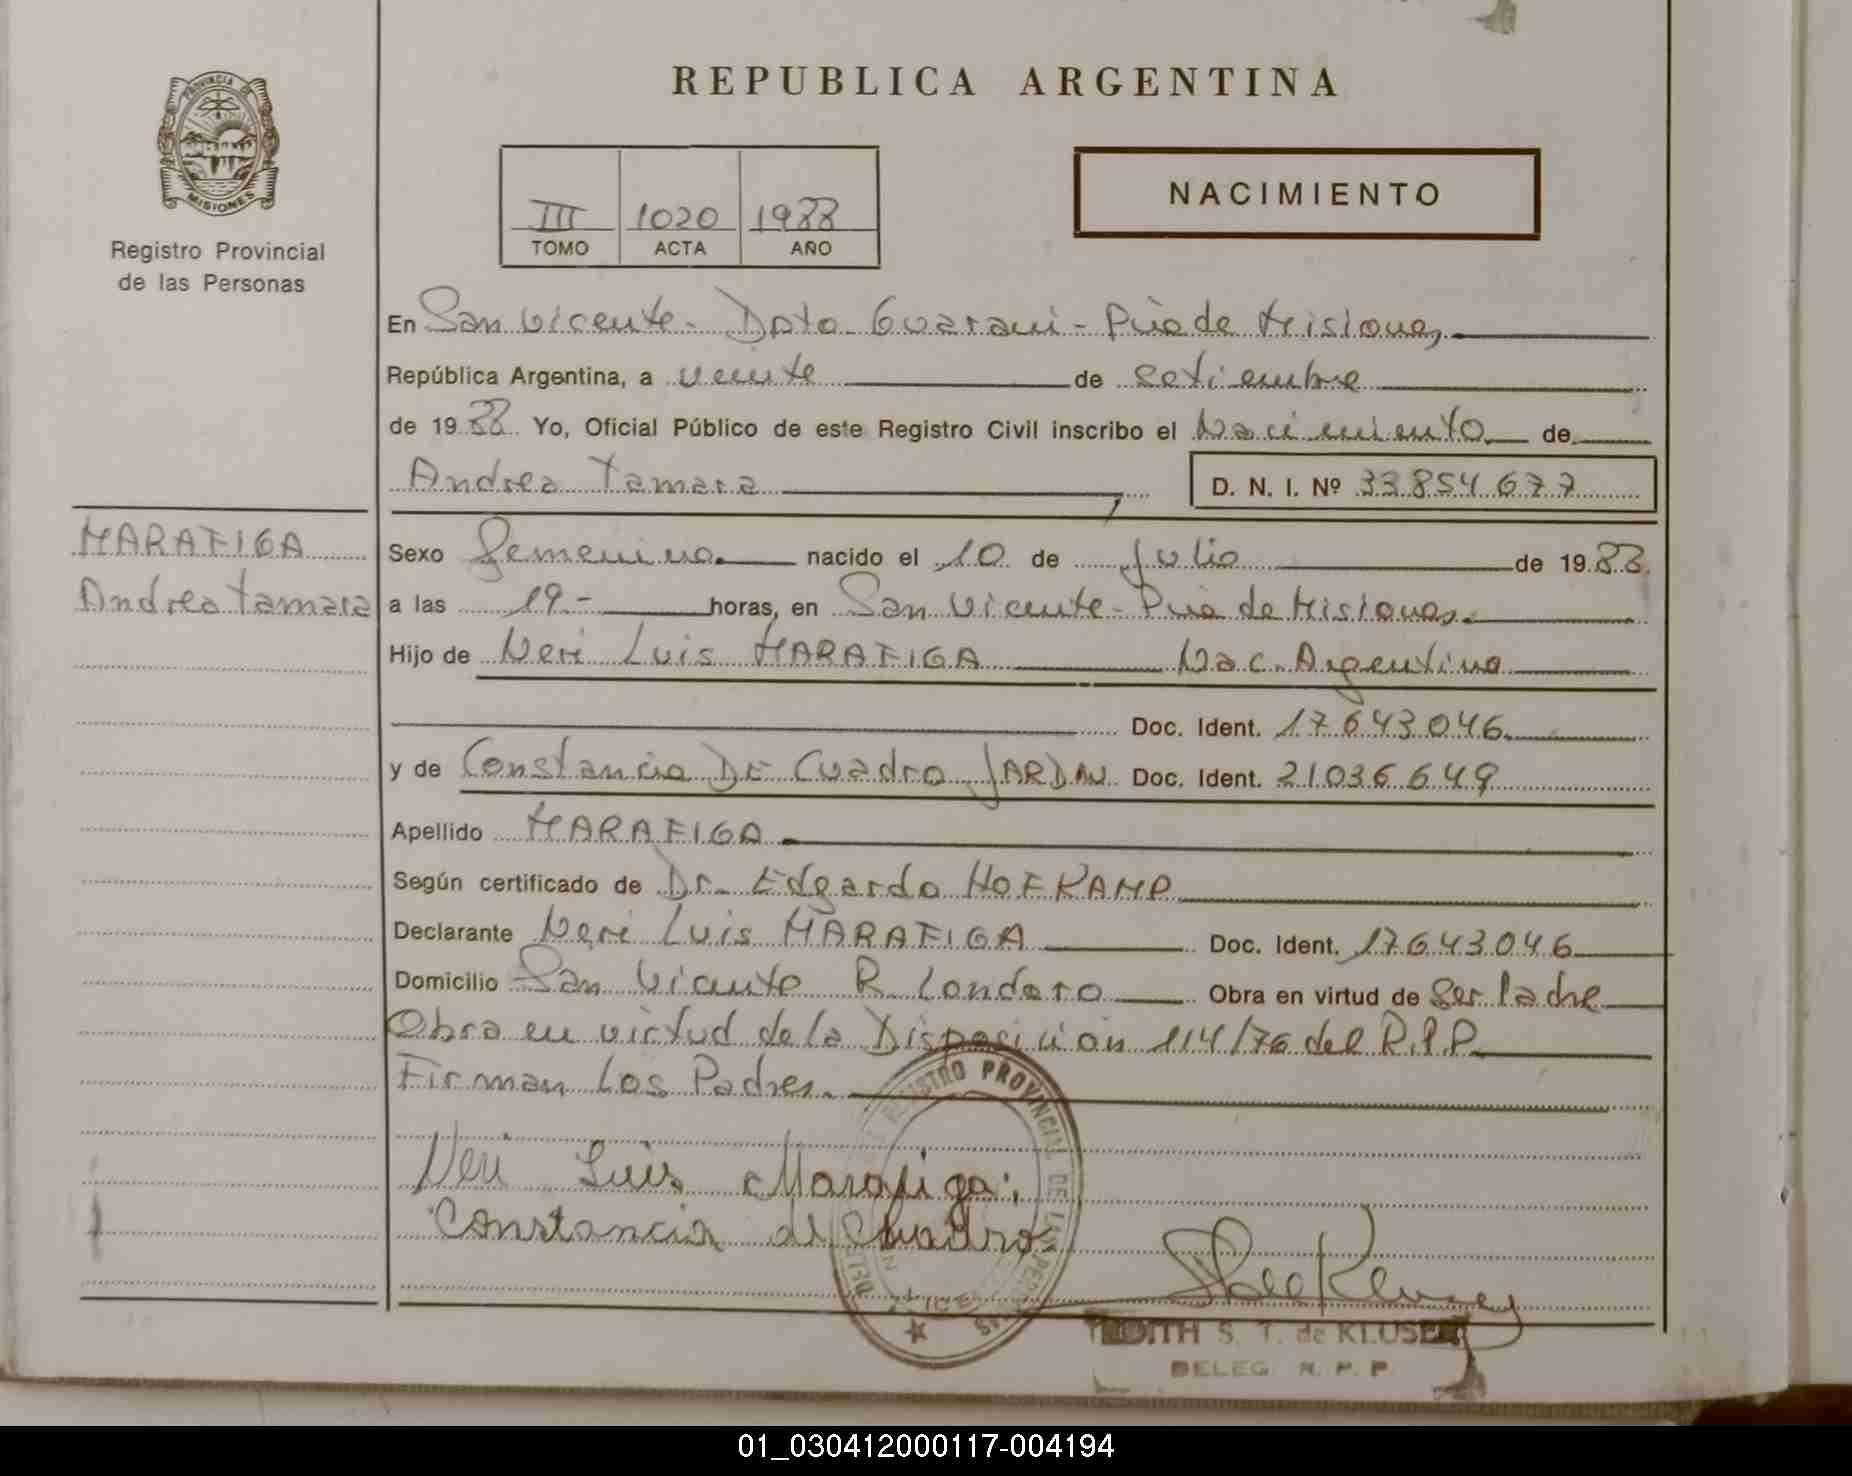 REPUBLICA ARGENTINA
PROVINCIA DE
MISIONES
Registro Provincial
de las Personas
III 1020 1988
TOMO ACTA AÑO
NACIMIENTO
En San Vicente - Dpto Guarani - Pcia de Misiones,
República Argentina, a veinte de setiembre
de 1988 Yo, Oficial Público de este Registro Civil inscribo el Nacimiento de
Andrea Tamara D. N. I. Nº 33854677
MARAFIGA
Andrea Tamara
Sexo femenino nacido el 10 de Julio de 1988
a las 19.- horas, en San Vicente - Pcia de Misiones.
Hijo de Neri Luis MARAFIGA Nac. Argentina
Doc. Ident. 17643046
y de Constancia DE Cuadro JARDAN Doc. Ident. 21036649
Apellido MARAFIGA
Según certificado de Dr. Edgardo HOFKAMP
Declarante Neri Luis MARAFIGA Doc. Ident. 17643046
Domicilio San Vicente R. Londero Obra en virtud de Ser Padre
Obra en virtud de la Disposición 114/76 del R.P.P.
Firman Los Padres.
Neri Luis Marafiga
Constancia de Cuadro
REGISTRO PROVINCIAL DE LAS PERSONAS
EDITH S. T. de KLUSER
DELEG. R. P. P.
01_030412000117-004194